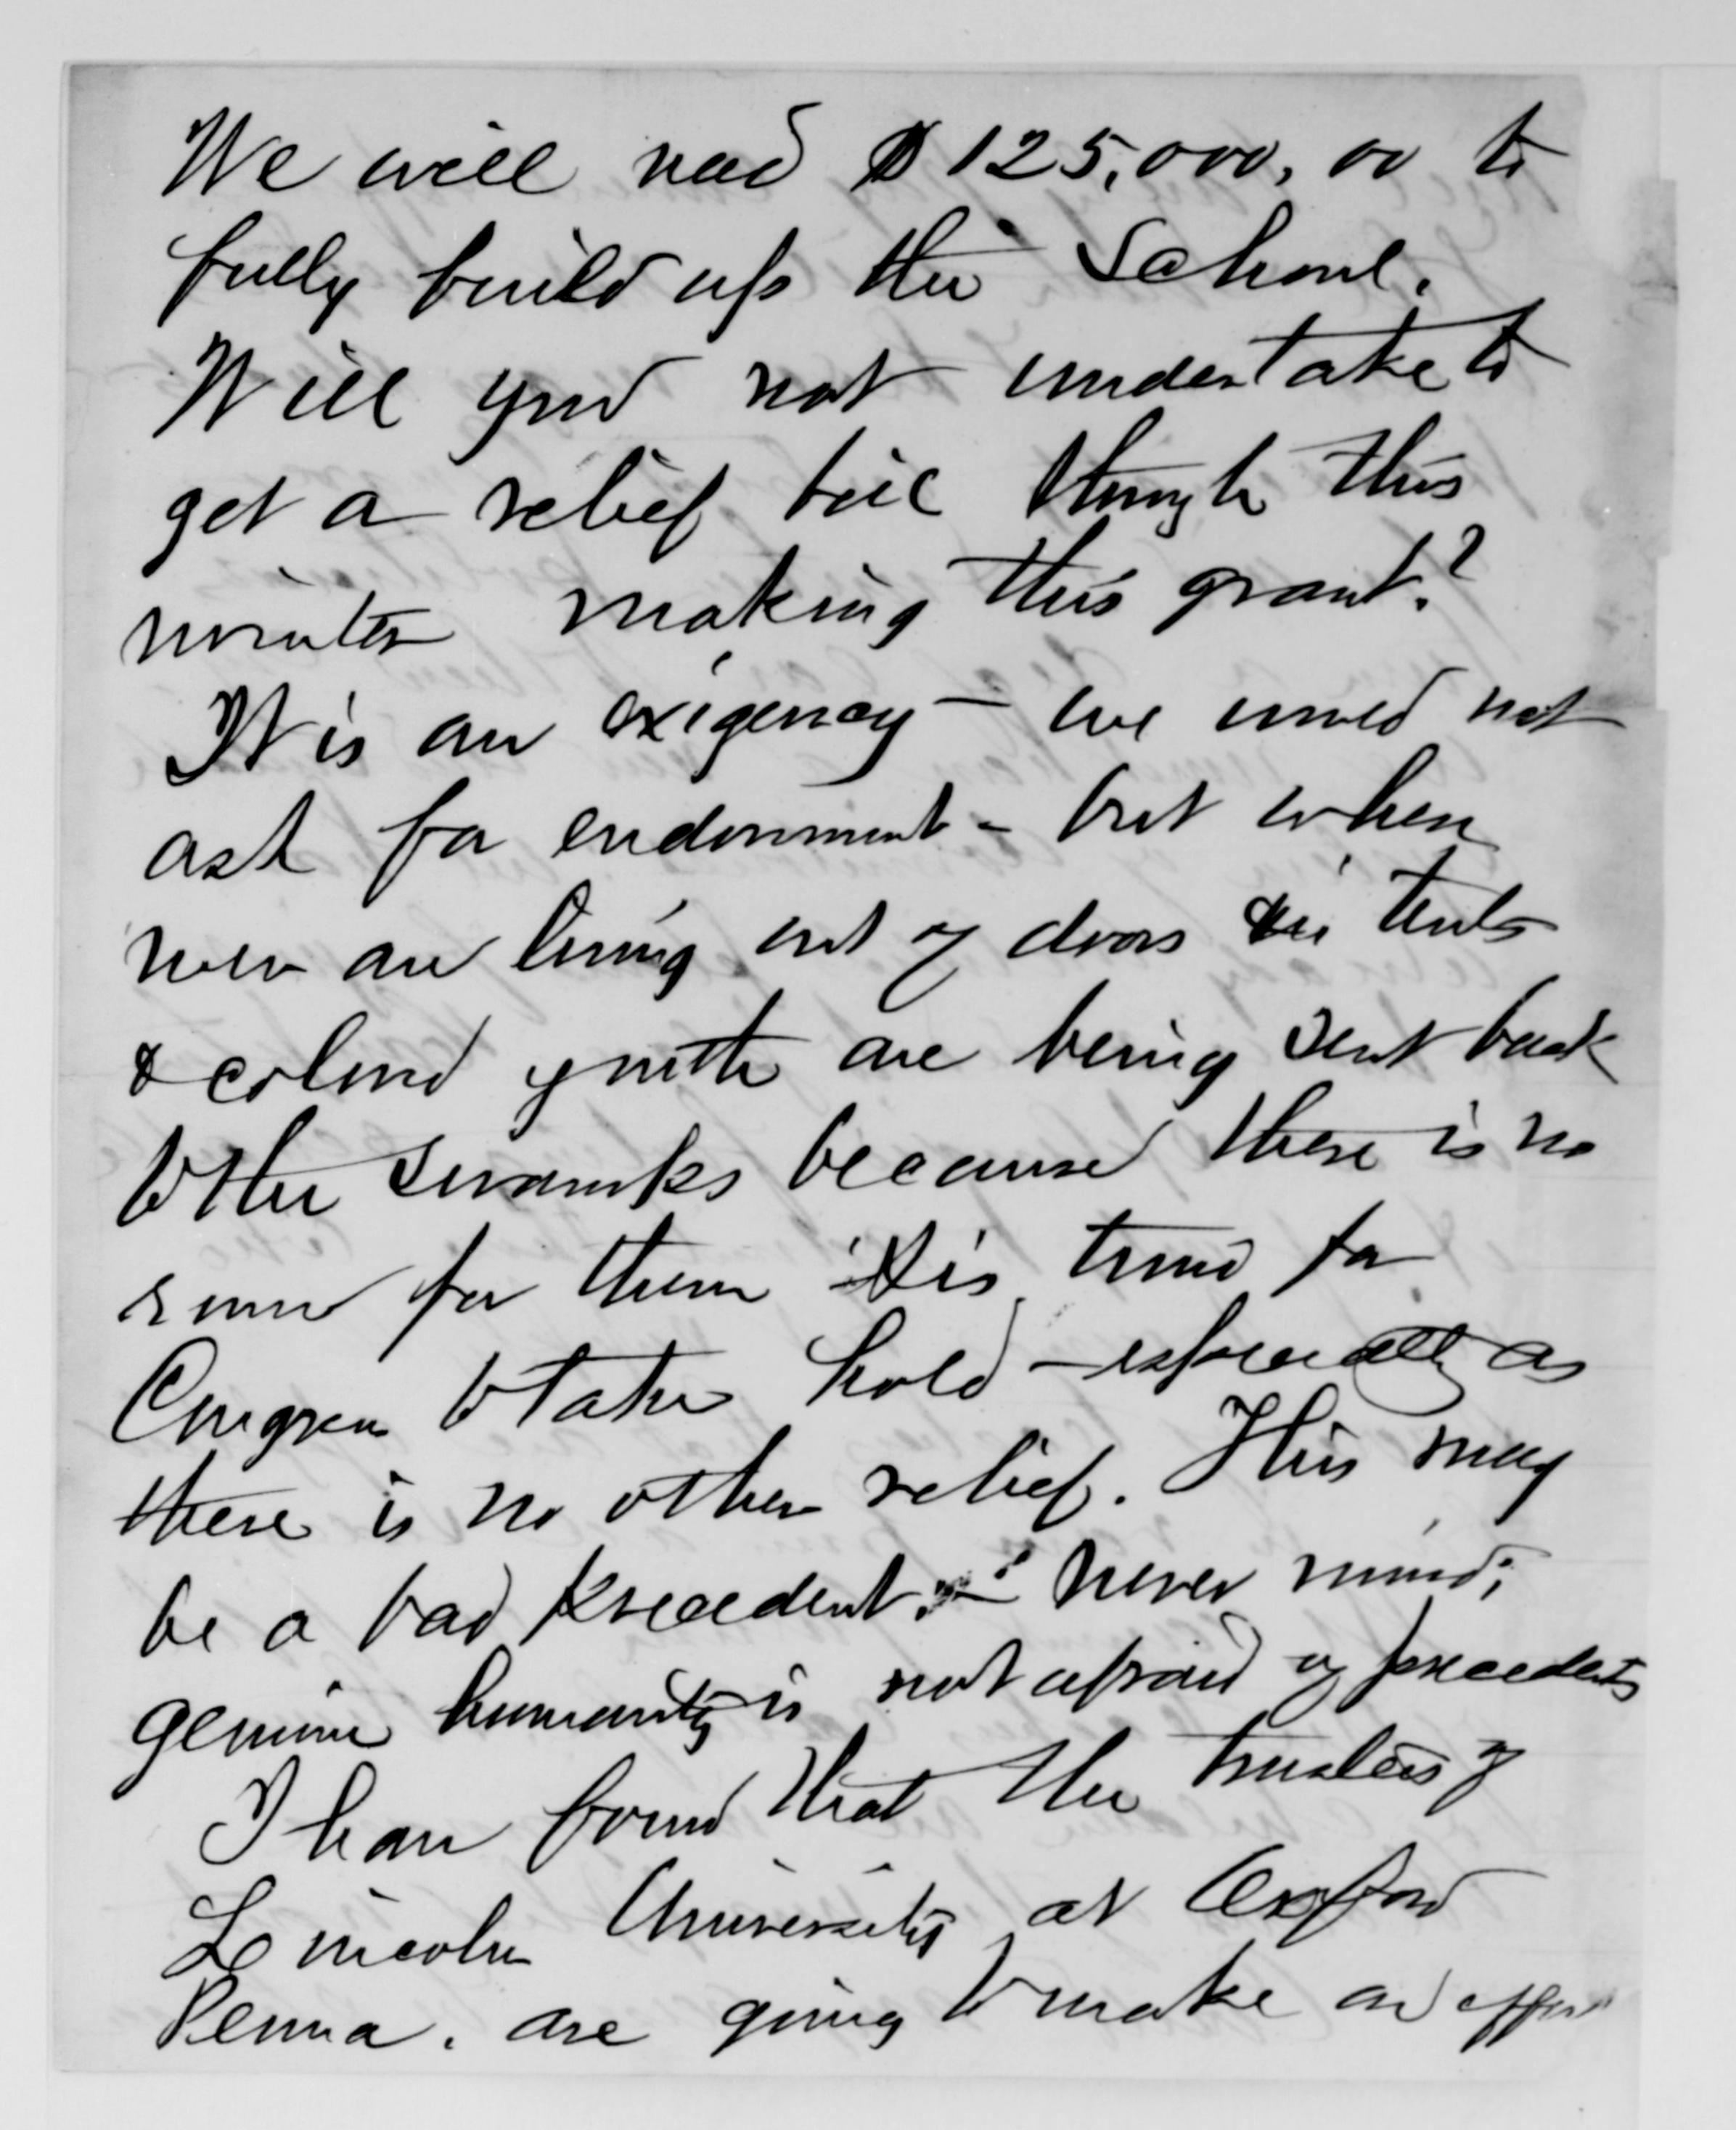 We will need $125,000,00 to
fully build up the School.
Will you not undertake to
get a relief bill through this
winter making this grant?
It is an exigency — we would not
ask for endowment – but when
men are living out of doors in tents
& colored youth are being sent back
to the swamps because there is no
room for them it is time for
Congress to take hold – especially as
there is no other relief. This may
be a bad precedent. – never mind;
genuine humanity is not afraid of precedents
I have found that the trustees of
Lincoln University at Oxford
Penna. are going to make an effort